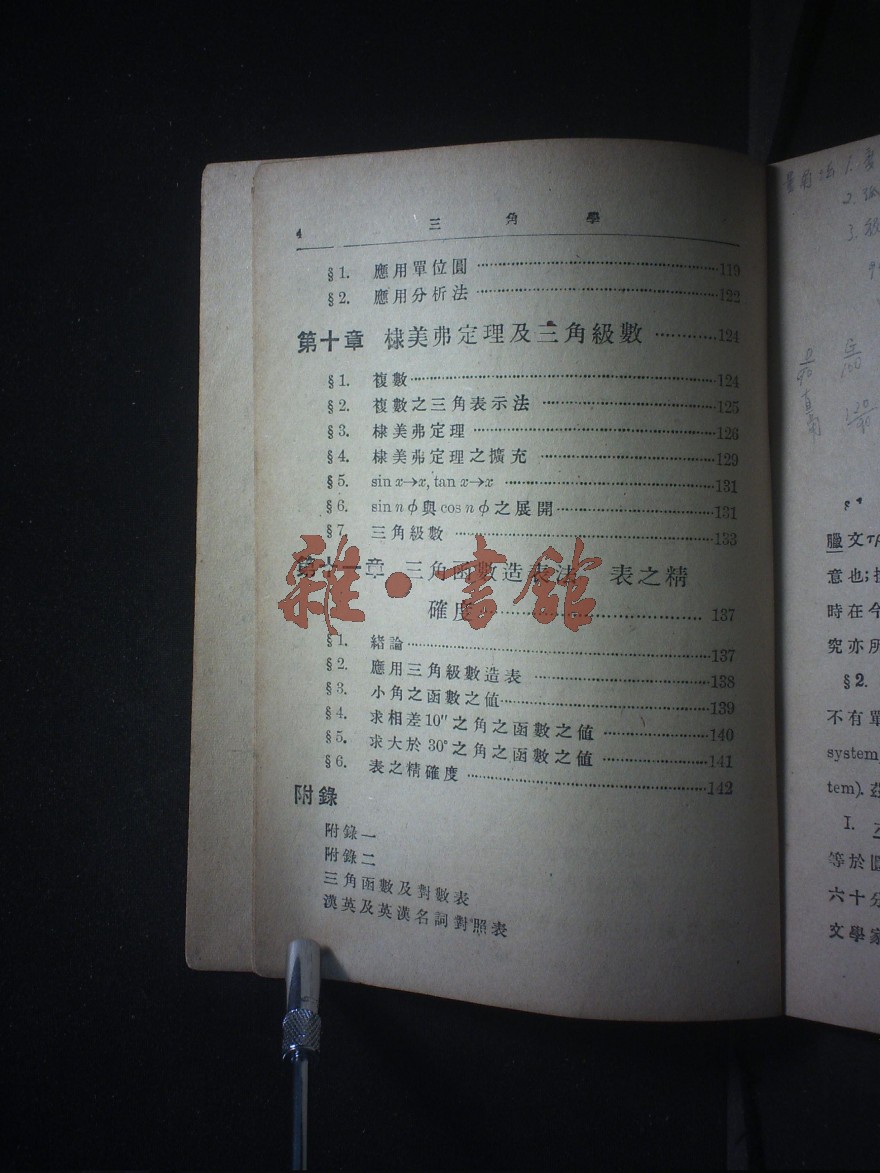 4 三角學
§1. 應用單位圓 119
§2. 應用分析法 122
第十章 棣美弗定理及三角級數 124
§1. 複數 124
§2. 複數之三角表示法 125
§3. 棣美弗定理 126
§4. 棣美弗定理之擴充 129
§5. sin x→x, tan x→x 131
§6. sin n ϕ 與 cos n ϕ 之展開 131
§7. 三角級數 133
第十一章 三角函數造表法 表之精
確度 137
§1. 緒論 137
§2. 應用三角級數造表 138
§3. 小角之函數之值 139
§4. 求相差10″之角之函數之値 140
§5. 求大於30°之角之函數之値 141
§6. 表之精確度 142
附錄
附錄一
附錄二
三角函數及對數表
漢英及英漢名詞對照表
雜·書館
1.
2.
3.
臘文
意也;
時在今
究亦所
§2.
不有單
system
tem).
I.
等於
六十分
文學家